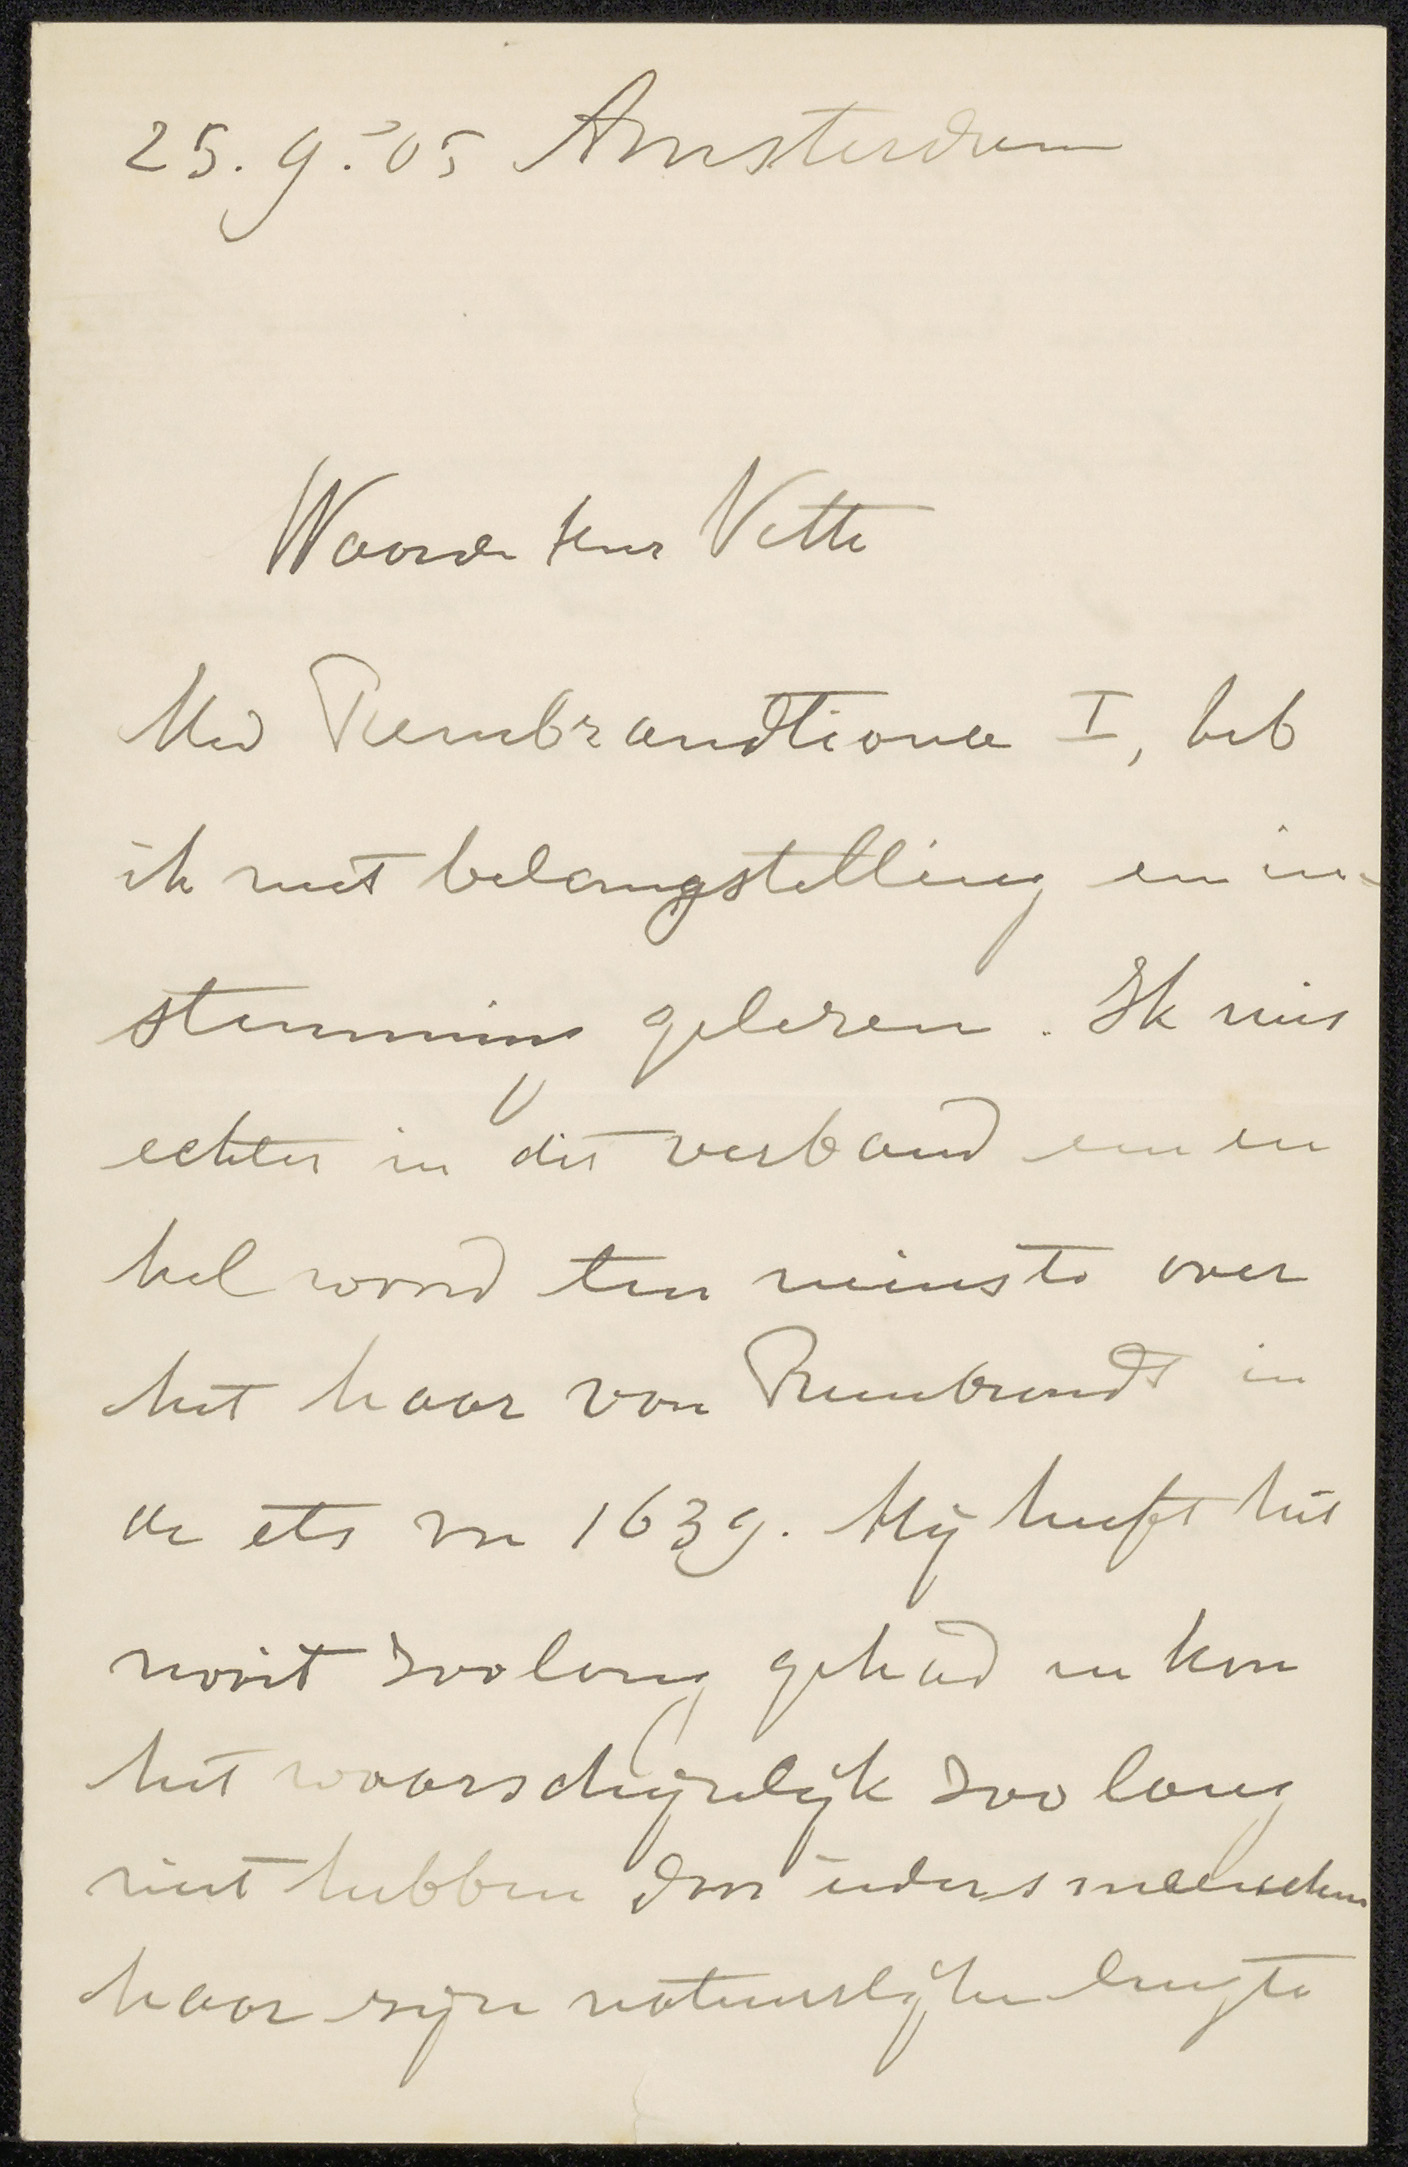 25.9.'05 Amsterdam
Waarde heer Veth
Uw Rembrandtiana I, heb
ik met belangstelling en in-
stemming gelezen. Ik mis
echter in dit verband een en
kel woord ten minste over
het haar van Rembrandt in
de ets van 1639. Hij heeft het
nooit zoolang gehad en kon
het waarschijnlijk zoo lang
niet hebben daar ieders menschen
haar zijn natuurlijke lengte